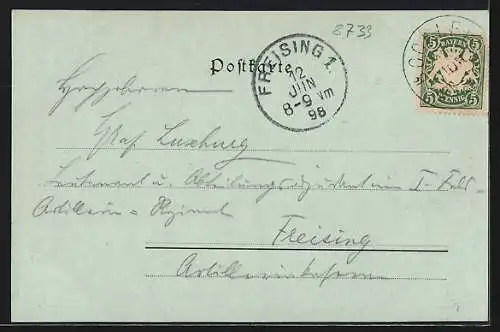 8733
Postkarte
FREISING 1.
12
JUN
8-9 Vm
98
BAYERN
5 5
5 PFENNIG 5
Hochgeboren
Graf Luxburg
Leutenant u. Abtheilungsadjutant im I. Feld-
Artillerie = Regiment
Freising
Artilleriekaserne